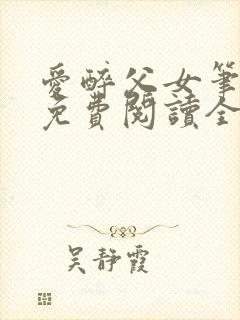 愛醉父女筆
免費閱讀全
吳靜霞